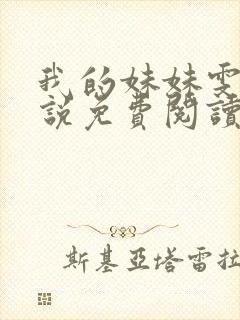 我的妹妹雯
說免費閱讀
斯基亞塔雷拉